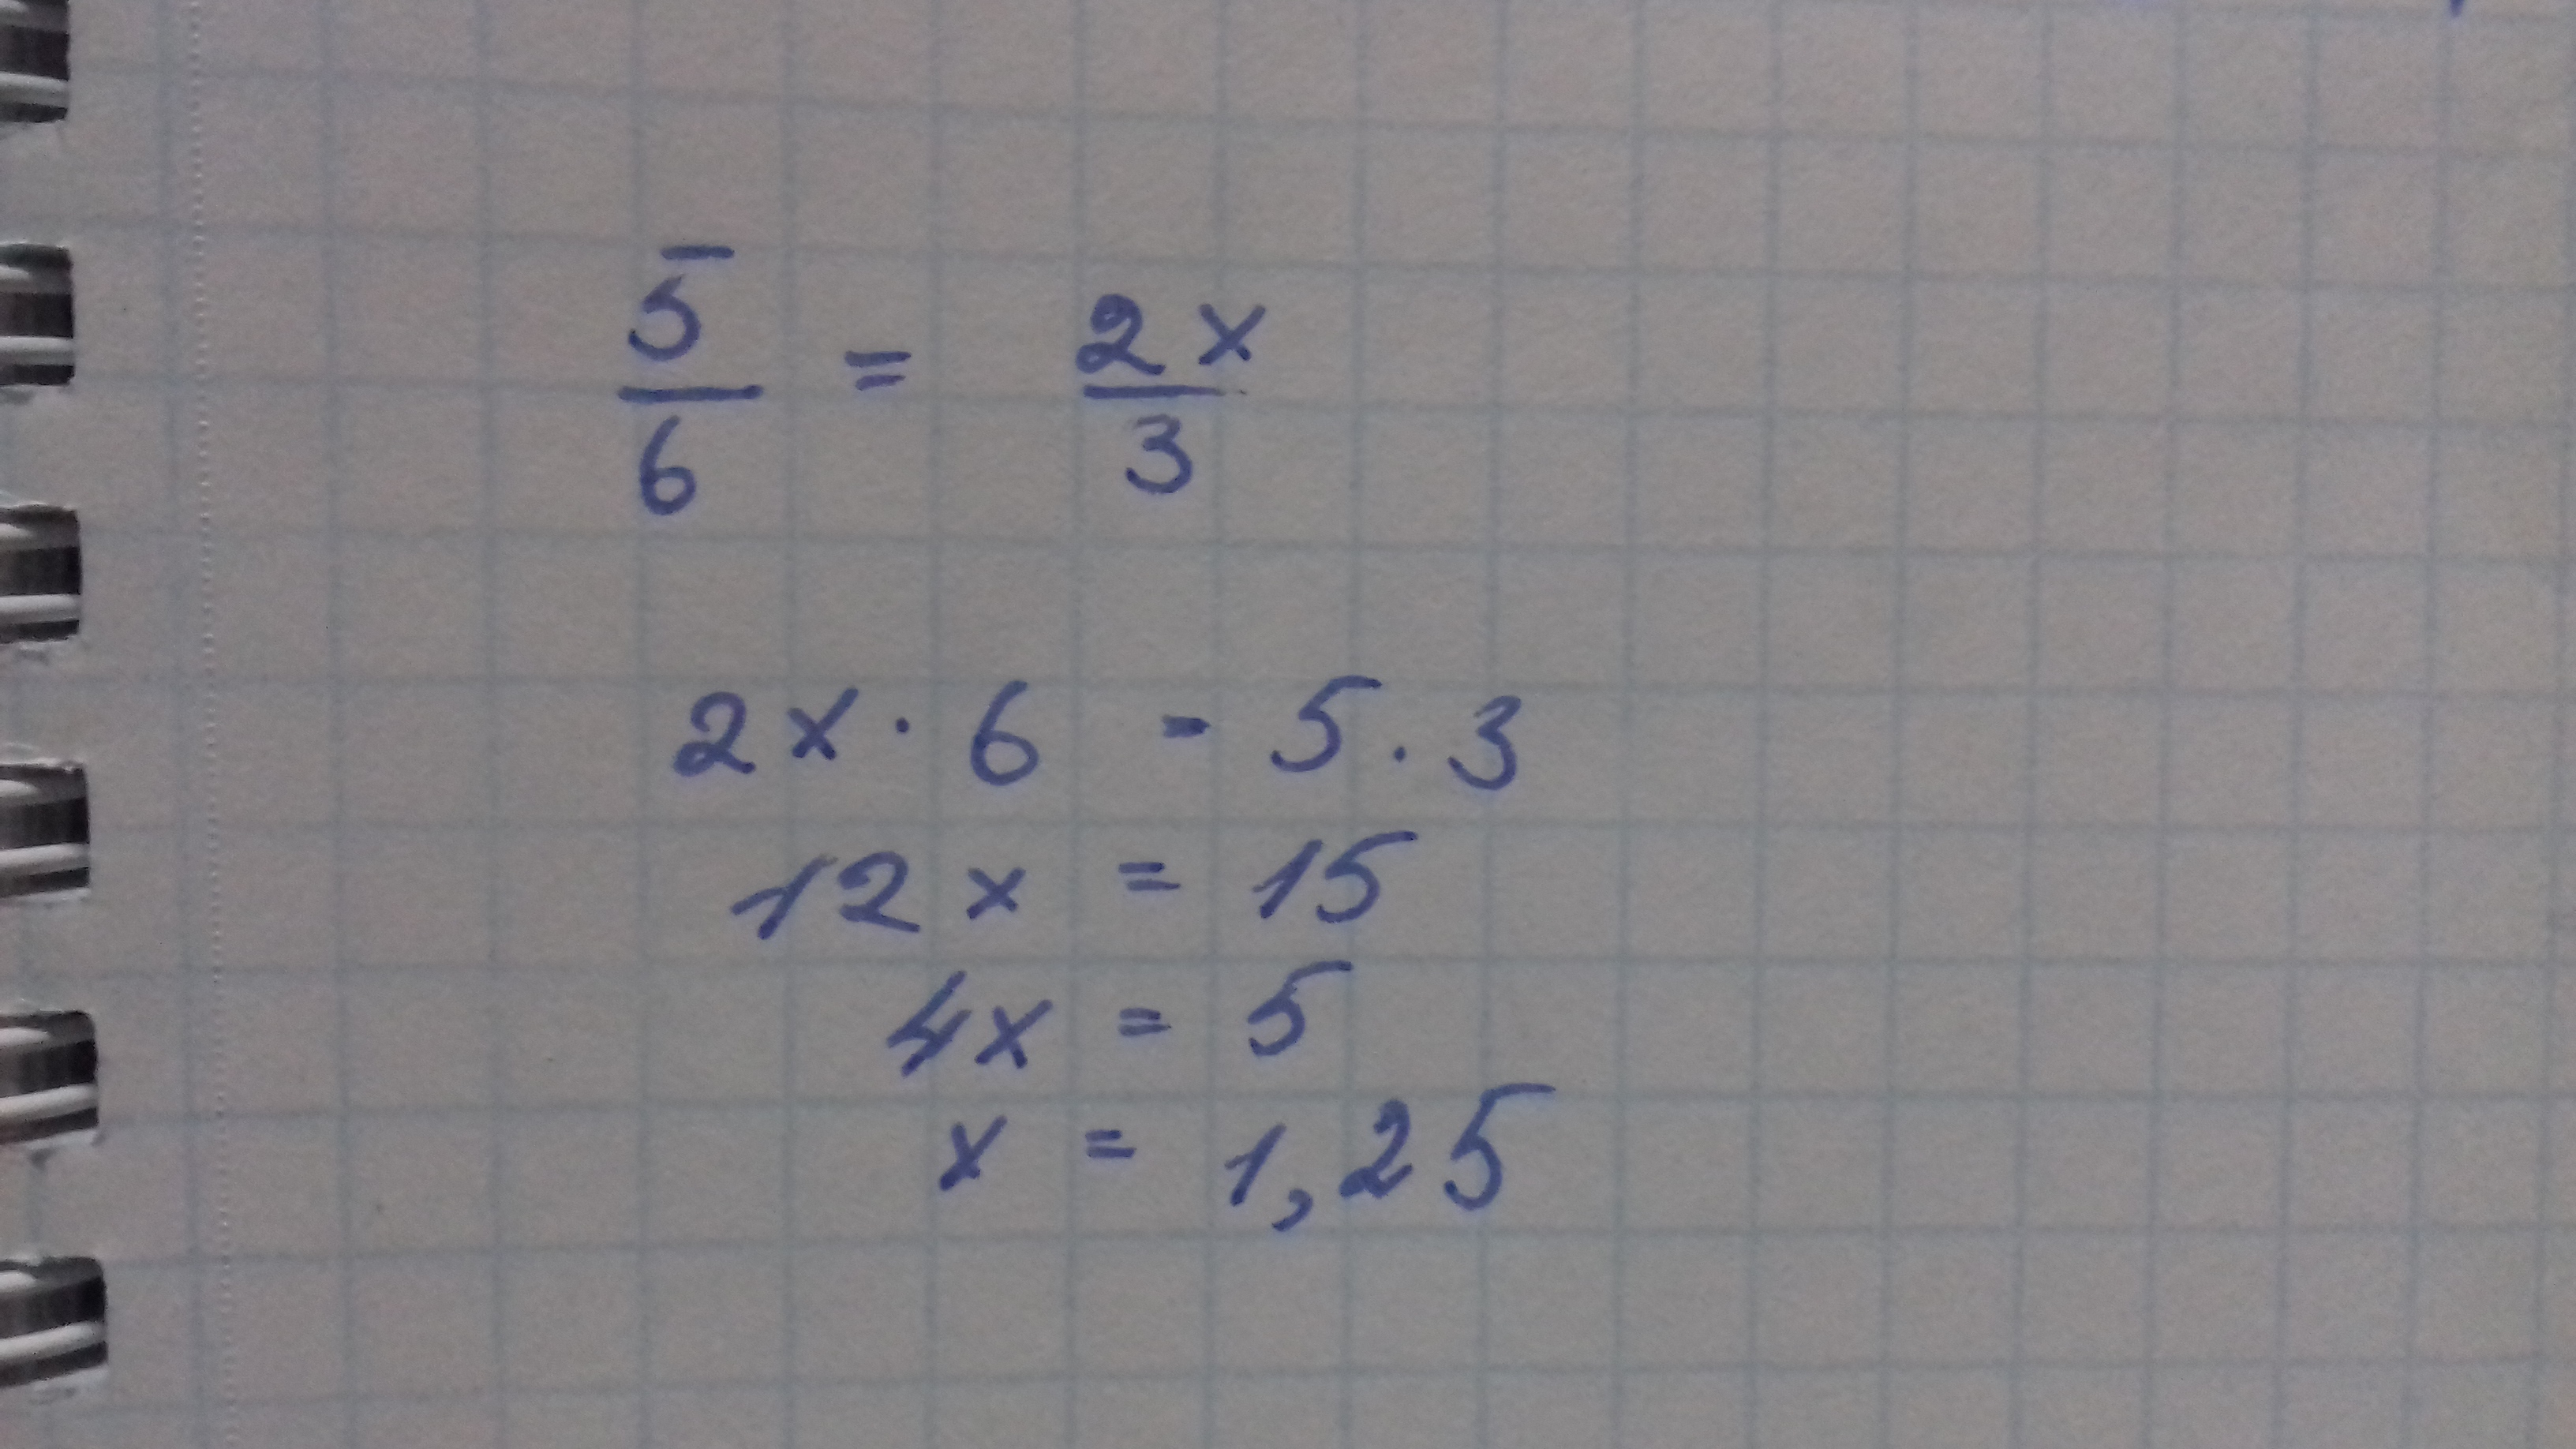 5/6 = 2x/3
2x · 6 = 5 · 3
12x = 15
4x = 5
x = 1,25